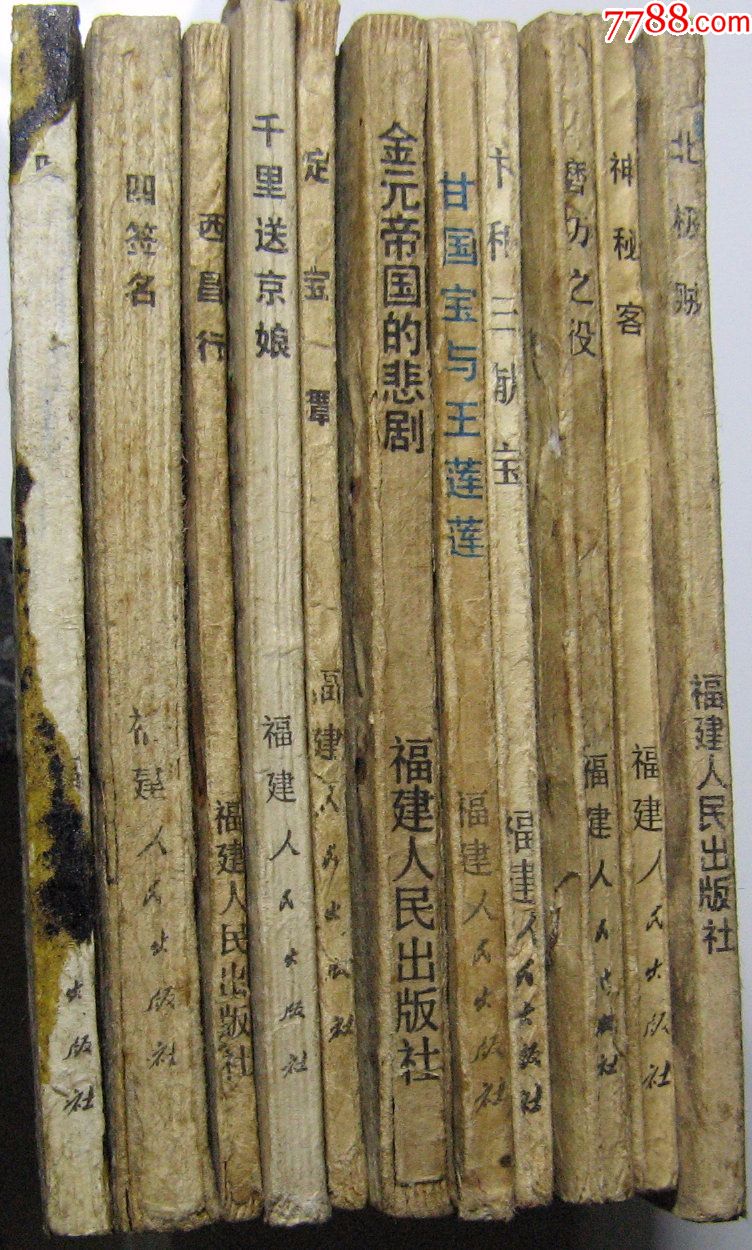 7788.com
出版社
四签名
福建人民出版社
西昌行
福建人民出版社
千里送京娘
福建人民出版社
定宝潭
福建人民出版社
金元帝国的悲剧
福建人民出版社
甘国宝与王莲莲
福建人民出版社
卞和三献宝
福建人民出版社
磨坊之役
福建人民出版社
神秘客
福建人民出版社
北极熊
福建人民出版社